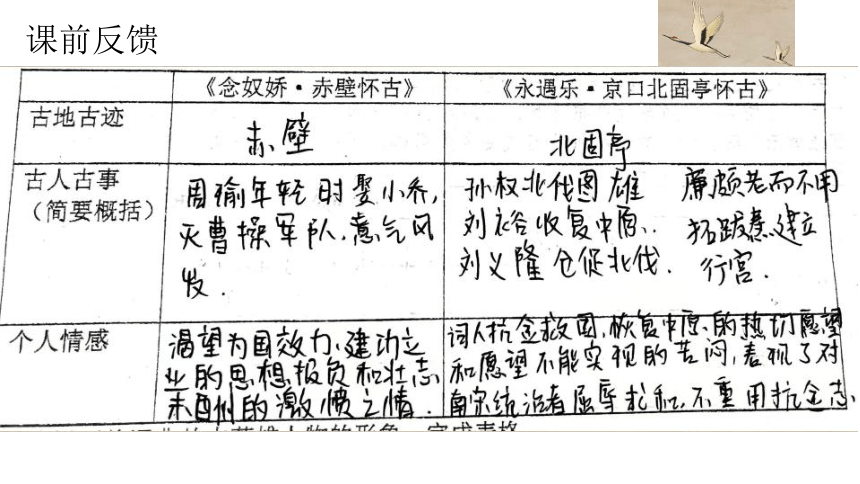 课前反馈
《念奴娇·赤壁怀古》 《永遇乐·京口北固亭怀古》
古地古迹 赤壁 北固亭
古人古事
（简要概括）
周瑜年轻时娶小乔，
灭曹操军队，意气风
发．
孙权北伐图雄
刘裕收复中原．
刘义隆仓促北伐．
廉颇老而不用
拓跋焘建立
行宫．
个人情感
渴望为国效力、建功立
业的思想抱负和壮志
未酬的激愤之情．
词人抗金救国，恢复中原的热切愿望
和愿望不能实现的苦闷，表现了对
南宋统治者屈辱求和，不重用抗金志